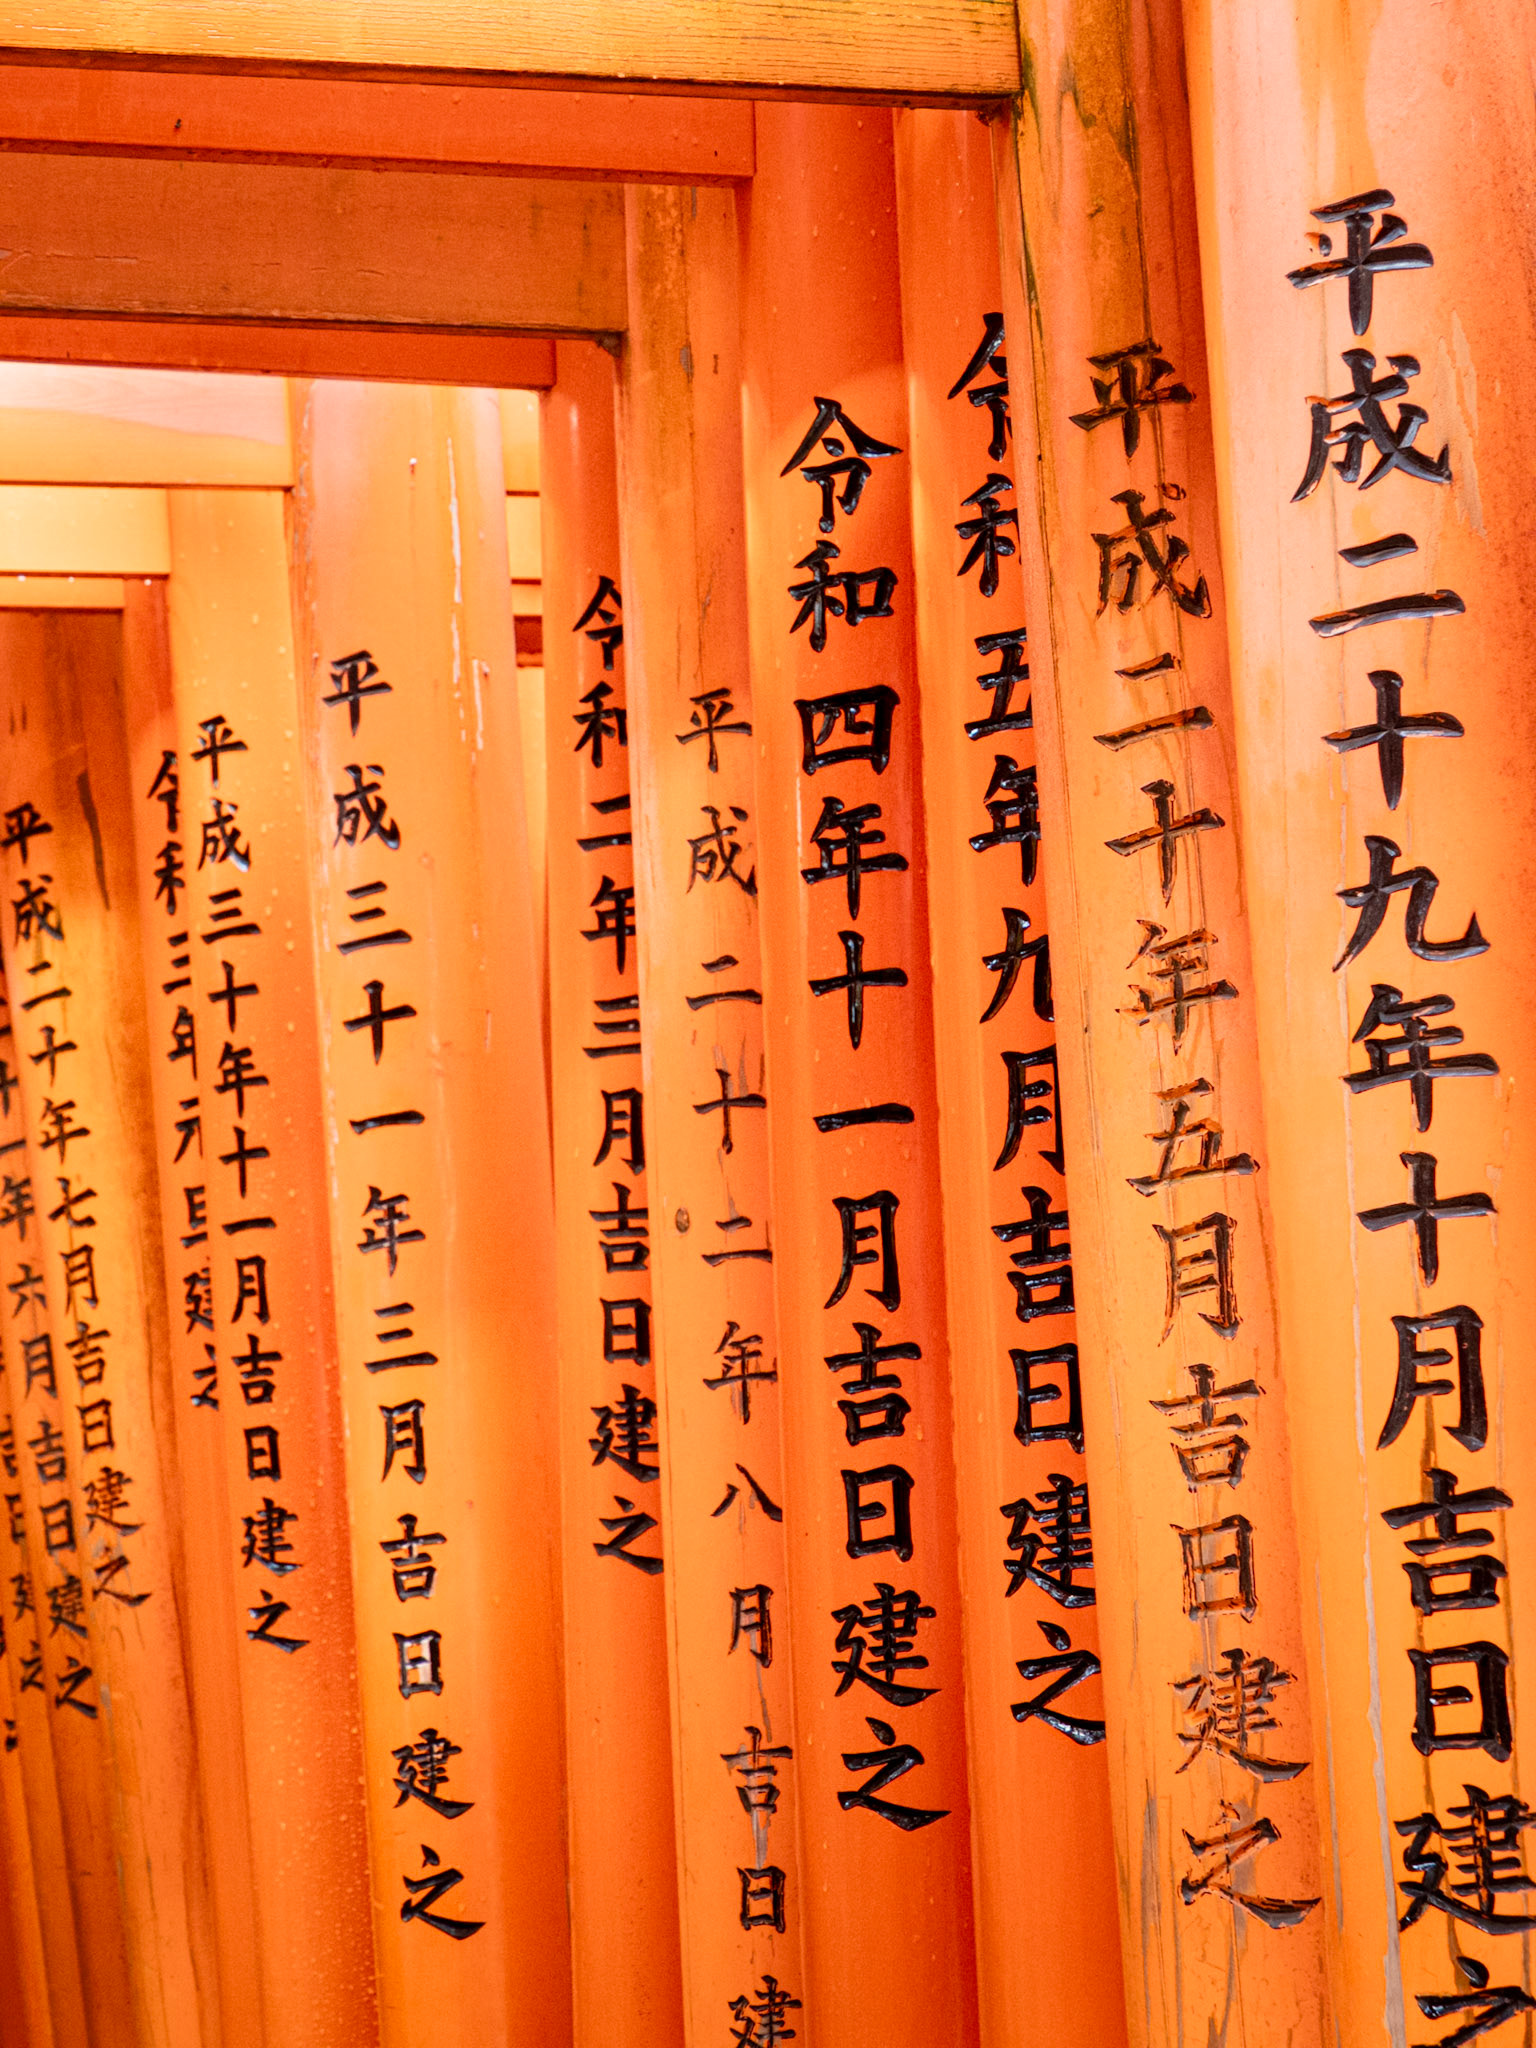 平成二十九年十月吉日建之
平成二十年五月吉日建之
令和五年九月吉日建之
令和四年十一月吉日建之
平成二十二年八月吉日建
令和二年三月吉日建之
平成三十一年三月吉日建之
平成三十年十一月吉日建之
令和三年元旦建之
平成二十年七月吉日建之
十一年六月吉日建之
吉日建之